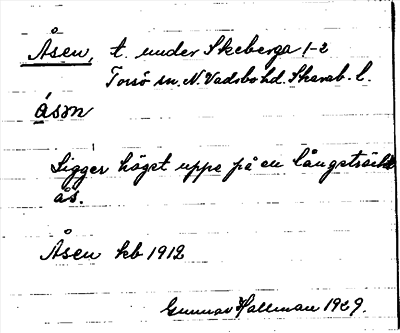 Åsen, t. under Skeberga 1-2
Torsö sn. N. Vadsbo hd. Skarab. l.
åsm
Ligger högst uppe på en långsträckt
ås.
Åsen kb 1912
Gunnar Hallman 1929.